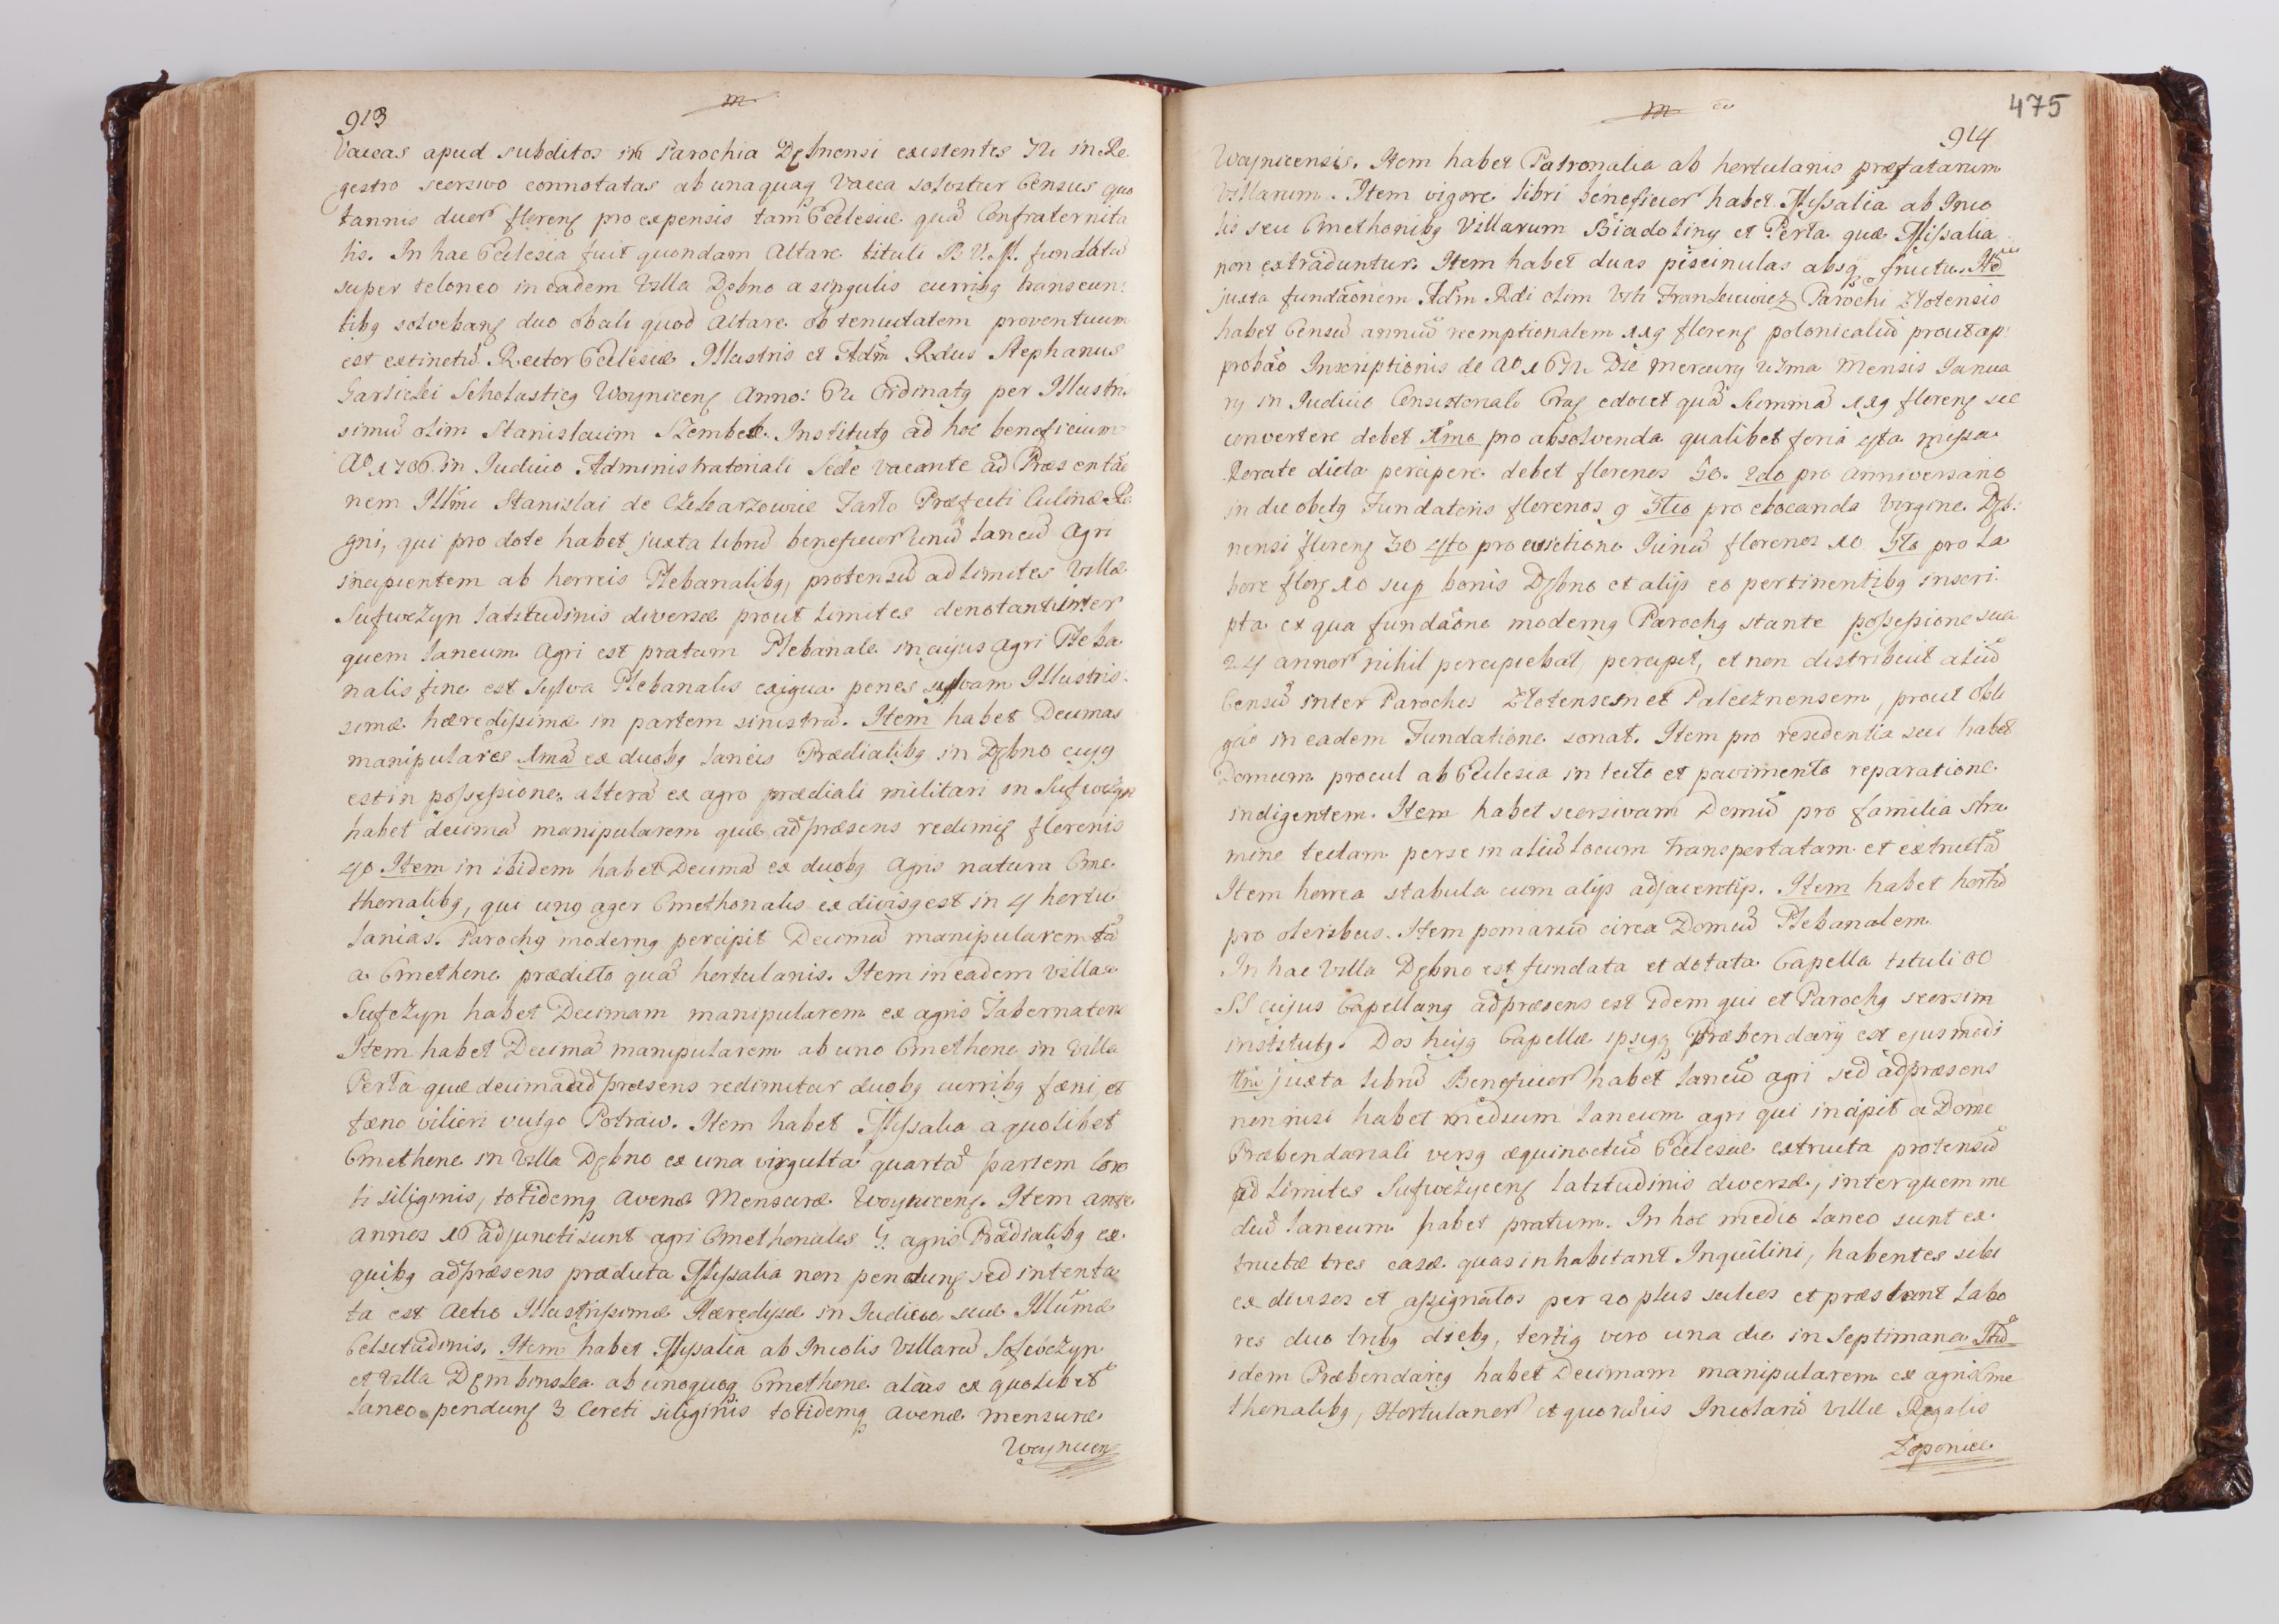 913
m
Vaccas apud subditos in Parochia Dębnensi existentes 72 in Re
gestro seorsivo connotatas ab unaquaq vacca solvitur Census quo
tannis duor floreng pro expensis tam Ecclesiæ quã Confraternita
tis. In hac Ecclesia fuit quondam Altare tituli B V. M. fundatũ
super teloneo in eadem Villa Dębno a singulis curribg transeun:
tibg solvebang duo oboli quod Altare ob tenuitatem proventuum
est extinctũ Rector Ecclesiæ Illustris et Adm Rdus Stephanus
Garlicki Scholasticg Woyniceng Anno: Ordinatg per Illustris
simũ olim Stanislaum Szembek. Institutg ad hoc beneficium
Ao 1706 in Judicio Administratoriali Sede vacante ad Præsentãe
nem Illmi Stanislai de Czekarzowice Tarło Præfecti Culinæ Re
gni, qui pro dote habet juxta librũ beneficior unũ laneũ Agri
incipientem ab horreis Plebanalibg, protensũ ad limites Villæ
Sufwczyn latitudinis diversæ prout limites denotant inter
quem laneum Agri est pratum Plebanale in cujus agri Pleba
nalis fine est Sylva Plebanalis exigua penes sylvam Illustris:
simæ hæredissimæ in partem sinistrã. Item habet Decimas
manipulares 1mã ex duobg laneis Prædialibg in Dębno cujg
est in possessione. alterã ex agro prædiali militari in Sufwczyn
habet decimã manipularem quæ ad præsens redimig florenis
40 Item in ibidem habet Decimã ex duobg Agris natura Cme
thonalibg, qui ung ager Cmethonalis ex divisg est in 4 hortu
lanias. Parochg moderng percipit Decimã manipularem tã
a Cmethone prædicto quã hortulanis. Item in eadem Villa
Sufczyn habet Decimam manipularem ex agris Tabernatoris
Item habet Decimã manipularem ab uno Cmethone in Villa
Perła quæ decima ad præsens redimitur duobg curribg fæni, et
fæno viliori vulgo Potraw. Item habet Missalia a quolibet
Cmethone in Villa Dębno ex una virgulta quartã partem Core
ti siliginis, totidemq avenæ Mensuræ Woyniceng. Item ante
annos 10 adjuncti sunt agri Cmethonales 5 agris Prædialibg ex
quibg ad præsens prædicta Missalia non pendung sed intenta
ta est Actio Illustrissimæ Hæredissæ in Judicio suæ Illũmæ
Celsitudinis. Item habet Missalia ab Incolis Villarũ Sofwczyn
et Villa Dęmbinska ab unoquoq Cmethone alias ex quolibet
laneo pendung 3 Coreti siliginis totidemq avenæ mensuræ
Woyniceng
m
475
914
Woynicensis. Item habet Patronalia ab hortulanis præfatarum
Villarum. Item vigore libri beneficior habet Missalia ab Inco
lis seu Cmethonibg Villarum Biadoliny et Perła quæ Missalia
non extraduntur. Item habet duas piscinulas absq fructu. Itẽ
juxta fundãonem Adm Rdi olim Parochi Złotensis
habet Censũ annuũ reemptionalem 119 floreng polonicaliũ prout ap:
probão Inscriptionis de Ao 1672 Die Mercury 27ma Mensis Janua
ry in Judicio Consistoriali Crag edocet quã Summã 119 floreng sic
convertere debet 1mo pro absolvenda qualibet feria 4ta missa
Rorate dicta percipere debet florenos 50. 2do pro Anniversario
in die obitg Fundatoris florenos 9 3tio pro elocanda Virgine Dęb:
nensi floreng 30 4to pro florenos 10 5to pro la
bore florg 10 sup bonis Dębno et alijs eo pertinentibg inscri:
pta ex qua fundãone moderng Parochg stante possessione sua
24 annor nihil percipiebat, percipit, et non distribuit aliũ
Censũ inter Parochos Złotensem et Palesznensem, prout obli
gão in eadem Fundatione sonat. Item pro residentia sua habet
Domum procul ab Ecclesia in tecto et pavimento reparatione
indigentem. Item habet seorsivam Domũ pro familia stra
mine tectam per se in aliũ locum transportatam et extructã
Item horrea stabula cum alijs adjacentijs. Item habet hortũ
pro oleribus. Item pomariũ circa Domũ Plebanalem
In hac Villa Dębno est fundata et dotata Capella tituli OO
SS cujus Capellang ad præsens est idem qui et Parochg seorsim
institutg. Dos hujg Capellæ ipsigq Præbendarij est ejusmodi
juxta librũ Beneficior habet laneũ agri sed ad præsens
non nisi habet medium laneum agri qui incipit a Domo
Præbendariali versg æquinoctiũ Ecclesiæ extructa protensũ
ad limites Sufwczyceng latitudinis diversæ, inter quem me
diũ laneum habet pratum. In hoc medio laneo sunt ex
tructæ tres casæ quas inhabitant Inquilini, habentes sibi
ex divisos et assignatos per 20 plus sulcos et præstant labo
res duo tribg diebg, tertig vero una die in Septimana. Itẽ
idem Præbendarig habet Decimam manipularem ex agris Cme
thonalibg, Hortulanor et quorũvis Incolarũ villæ Regalis
Łoponice